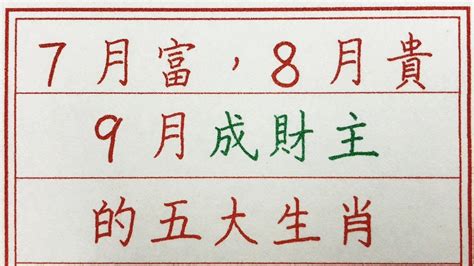 7月富，8月貴
9月成財主
的五大生肖